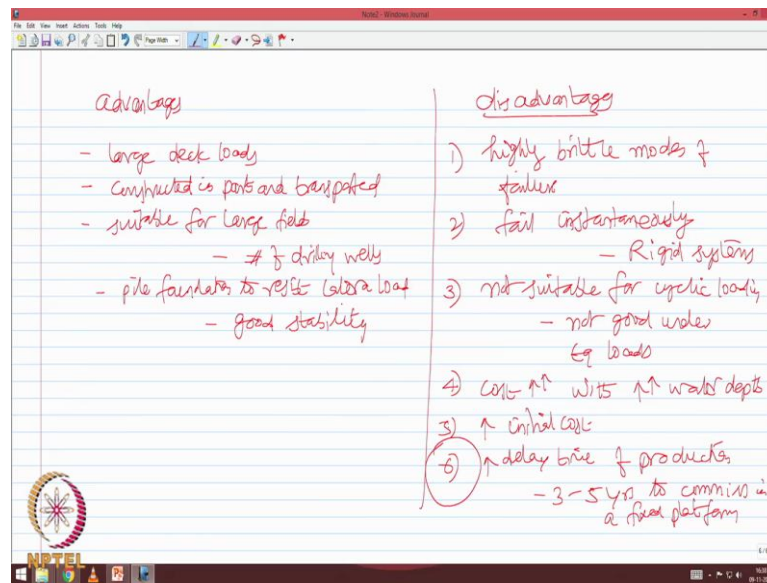 Note2 - Windows Journal
File Edit View Insert Actions Tools Help
Page Width
advantages
- large deck loads
- constructed in parts and transported
- suitable for large field
- # of drilling wells
- pile foundation to resist lateral load
- good stability
disadvantages
1) highly brittle modes of
failure
2) fail instantaneously
- Rigid systems
3) not suitable for cyclic loading
- not good under
Eq loads
4) cost ↑↑ with ↑↑ water depth
5) ↑ initial cost
6) ↑ delay time of production
- 3-5 yrs to commission
a fixed platform
NPTEL